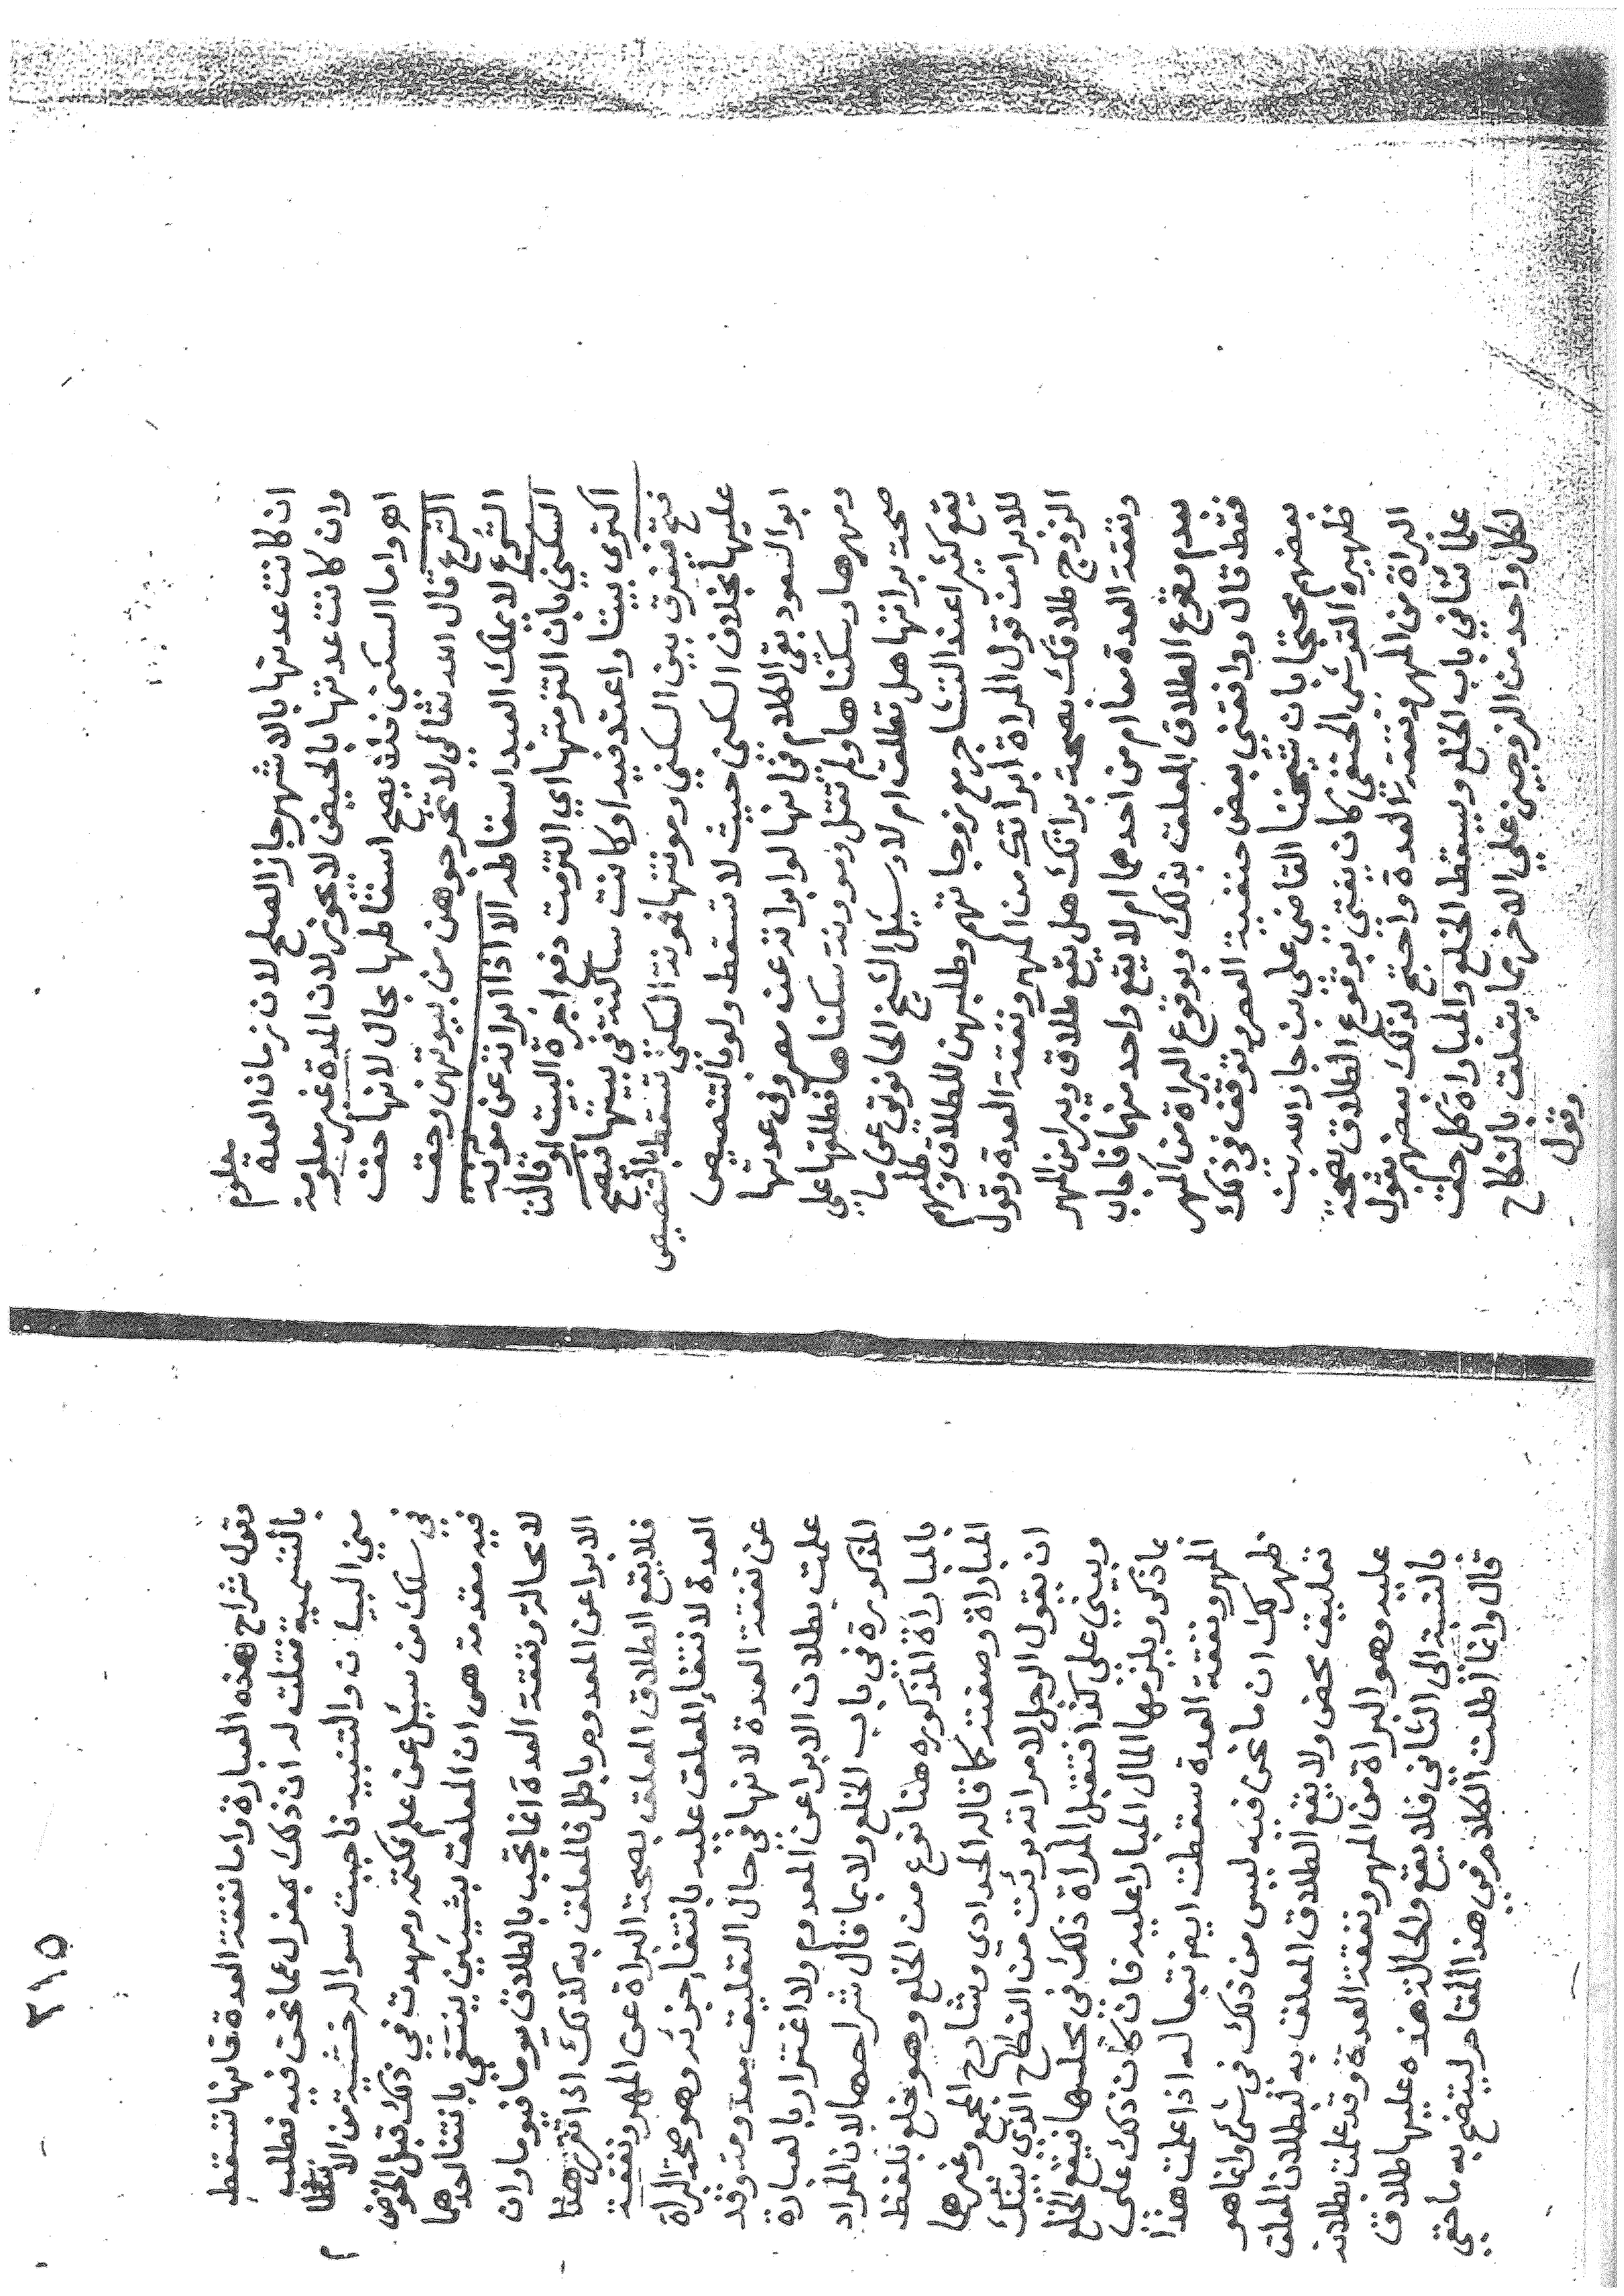 ان كانت عدتها بالاشهر جاز الصلح لان زمان العدة معلوم
وان كانت عدتها بالحيض لا يجوز لان المدة غير معلومة
اهـ واما السكنى فلا يصح اسقاطها بحال لانها حق
الشرع قال الله تعالي لا تخرجوهن من بيوتهن وحق
الشرع لا يملك العبد اسقاطه الا اذا ابراته عن مونة
السكني بان التزمتها اي التزمت دفع اجرة البيت او قالت
اكتري بيتا واعتد فيه او كانت ساكنة في بيتها فيصح
فتح فيفرق بين السكني ومونتها فمونة السكنى تسقط بالتنصيص
عليها بخلاف السكنى حيث لا تسقط ولو بالتنصيص
ابو السعود بقى الكلام في انها لو ابراته عن معروف عدتها
ومهرها وسكناها ولم تقل ومونة سكناها فطلقها على
صحة براتها هل تطلق ام لا وسئل الشيخ الحانوتي عن ما
يقع كثيرا عند التشاجر مع زوجاتهم وطلبهن للطلاق وطلبهم
للابرا من قول المراة ابراتك من المهر ونفقة العدة وقول
الزوج طلاقك بصحة براتك هل يقع طلاق ويبرا من المهر
ونفقة العدة معا ام من احدهما ام لا يقع واحد منهما فاجاب
بعدم وقوع الطلاق المعلق بذلك وبوقوع البراة من المهر
فقط قال ووافقني بعض حنفية العصر وتوقف في ذلك
بعضهم محتجا بان شيخنا القاضي على بن جار الله بن
ظهيرة القرشي الحنفي كان يفتي بوقوع الطلاق بصحة
البراة من المهر ونفقة العدة واحتج لذلك بعضهم بقول
علمائنا في باب الخلع ويسقط الخلع والمباراة كل حق
لكل واحد من الزوجين على الاخر مما يتعلق بالنكاح
وقول
٢١٥
وقول شراح هذه العبارة واما نفقة العدة فانها تسقط
بالتسمية فقلت له ان ذلك بمعزل عما نحن فيه فطلب
مني البيان والتنبيه فاجبت سواله خشية من الا
في سلك من سئل عن علم فكتمه ومهدت في ذلك قبل الخوض
فيه مقدمة هي ان المعلق بشيئين ينتفي بانتفا احدهما
لا محالة ونفقة العدة انما تجب بالطلاق يوما فيوما وان
الابرا عن المعدوم باطل فالمعلق به كذلك اذا تقرر هذا
فلا يقع الطلاق المعلق بصحة البراة عن المهر ونفقة
العدة لانتفاء المعلق عليه بانتفاء جزئه وهو صحة البراة
عن نفقة العدة لانها في حال التعليق معدومة وقد
علمت بطلان الابرا عن المعدوم ولا اغترار بالعبارة
المذكورة في باب الخلع ولا بما قال شراحها لان المراد
بالمباراة المذكوره هنا نوع من الخلع وهو خلع بلفظ
المباراة وصفته كما قاله الحدادي وشارح المجمع وغيرهما
ان يقول الرجل لامراته برئت من النكاح الذي بينك
وبيني على كذا فتقبل المراة ذلك في مجلسها فيقع الخلع
بما ذكر ويلزمها المال المبارا عليه فان كان ذلك على
المهر ونفقة العدة سقطت ايضا تبعا له اذا علمت هذا
ظهر لك ان ما نحن فيه ليس من ذلك في شئ وانما هو
تعليق محض ولا يقع الطلاق المعلق به لبطلان المعلق
عليه وهو البراة من المهر ونفقة العدة وقد علمت بطلانه
بالنسبة الى الثاني فلا يقع والحالة هذه عليها طلاق
قال وانما اطلت الكلام في هذا المقام ليتضح به ما خفي